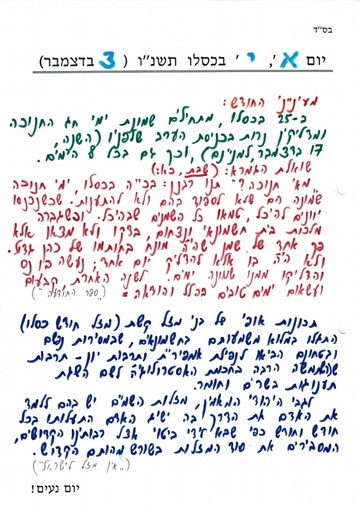 בס"ד
יום א', י' בכסלו תשנ"ו (3 בדצמבר)
מענייני החודש:
ב-25 בכסלו, מתחילים שמונת ימי חג החנוכה
ומדליקין נרות בכניסת הערב שלפניו (השנה,
17 בדצמבר למנינם), וכך גם בכל 8 הימים.
שואלת הגמרא: (שבת, כא:)
"מאי חנוכה?" תנו רבנן: בכ"ה בכסלו, ימי חנוכה
שמונה הם שלא לספוד בהם ולא להתענות. שכשנכנסו
יוונים להיכל, טמאו כל השמנים שבהיכל. וכשגברה
מלכות בית חשמונאי ונצחום, בדקו ולא מצאו אלא
פך אחד של שמן שהיה מונח בחותמו של כהן גדול.
ולא היה בו אלא להדליק יום אחד: נעשה בו נס
והדליקו ממנו שמונה ימים. לשנה האחרת קבעום
ועשאום ימים טובים בהלל והודאה: ("ספר התודעה")
תכונות אופי של בני מזל קשת (מזל חודש כסלו)
התגלו במלוא משמעותם בחשמונאים, שבמסירות נפש
ובטחונם הביאו לנפילת אמפירית ותרבות יון - תרבות
שהשתמשה הרבה בחכמת האסטרולוגיה לשם השגת
תענוגות בשרים וחומר.
לגבי היהודי המאמין, מזלות השמים יש בהם ללמד
את האדם את הדרך בה ישיג האדם התעלותו בכל
חודש וחודש כפי שבא לידי ביטוי אצל רבותינו הקדושים,
המסבירים את סוד המזלות בשורש מהותם הקדוש.
("אין מזל לישראל")
יום נעים!